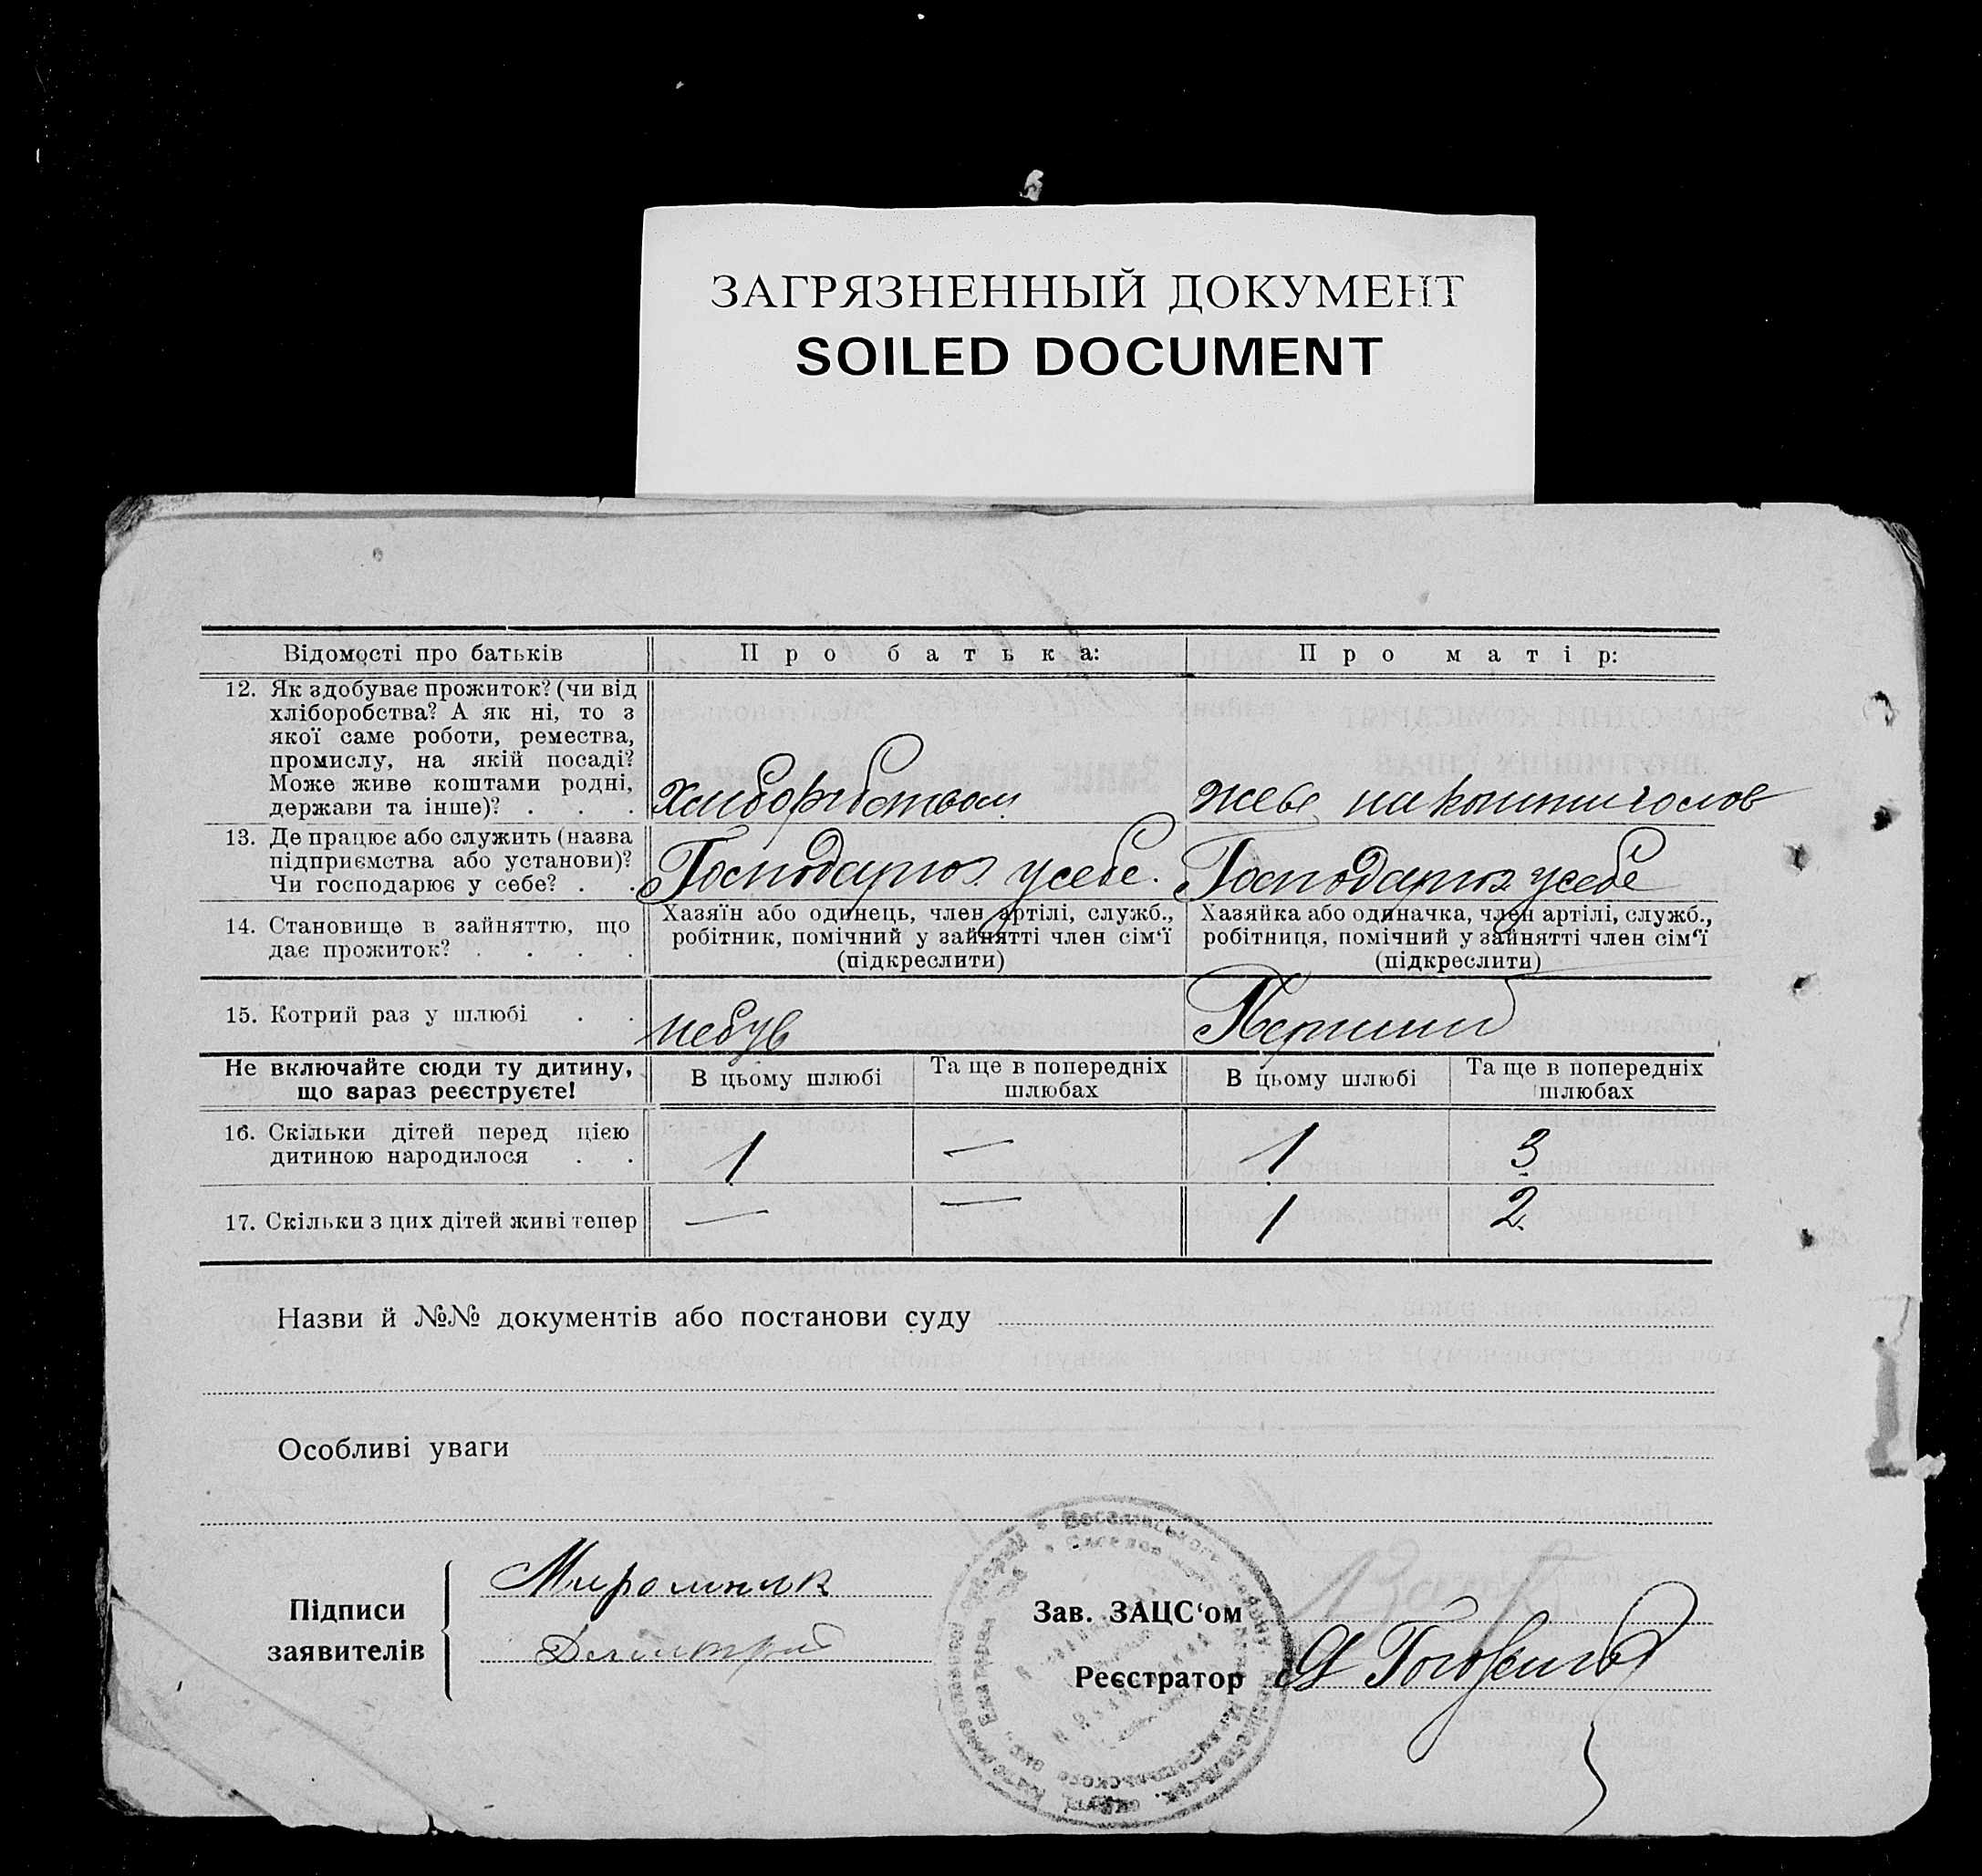 ЗАГРЯЗНЕННЫЙ ДОКУМЕНТ
SOILED DOCUMENT
Відомості про батьків
Про батька:
Про матір:
12. Як здобуває прожиток? (чи від
хліборобства? А як ні, то з
якої саме роботи, ремества,
промислу, на якій посаді?
Може живе коштами родні,
держави та інше)? . . .
Хлиборобством
живе на кошти
13. Де працює або служить (назва
підприємства або установи)?
Чи господарює у себе? . .
Господарює усебе.
Господарює усебе
14. Становище в зайняттю, що
дає прожиток? . . . .
Хазяїн або одинець, член артілі, служб.,
робітник, помічний у зайнятті член сім‘ї
(підкреслити)
Хазяйка або одиначка, член артілі, служб.,
робітниця, помічний у зайнятті член сім‘ї
(підкреслити)
15. Котрий раз у шлюбі . .
небув
Перший
Не включайте сюди ту дитину,
що зараз реєструєте!
В цьому шлюбі
Та ще в попередніх
шлюбах
В цьому шлюбі
Та ще в попередніх
шлюбах
16. Скільки дітей перед цією
дитиною народилося . .
1
—
1
3
17. Скільки з цих дітей живі тепер
—
—
1
2
Назви й №№ документів або постанови суду
Особливі уваги
Підписи
заявителів
Зав. ЗАЦС‘ом
Реєстратор